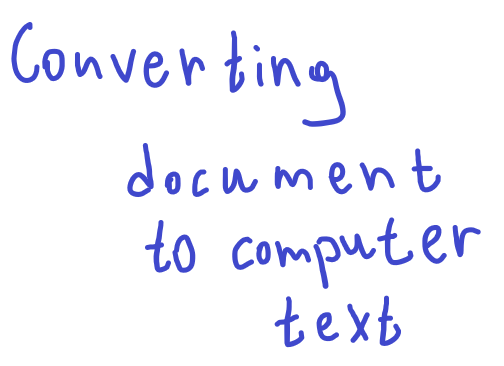 Converting
document
to computer
text